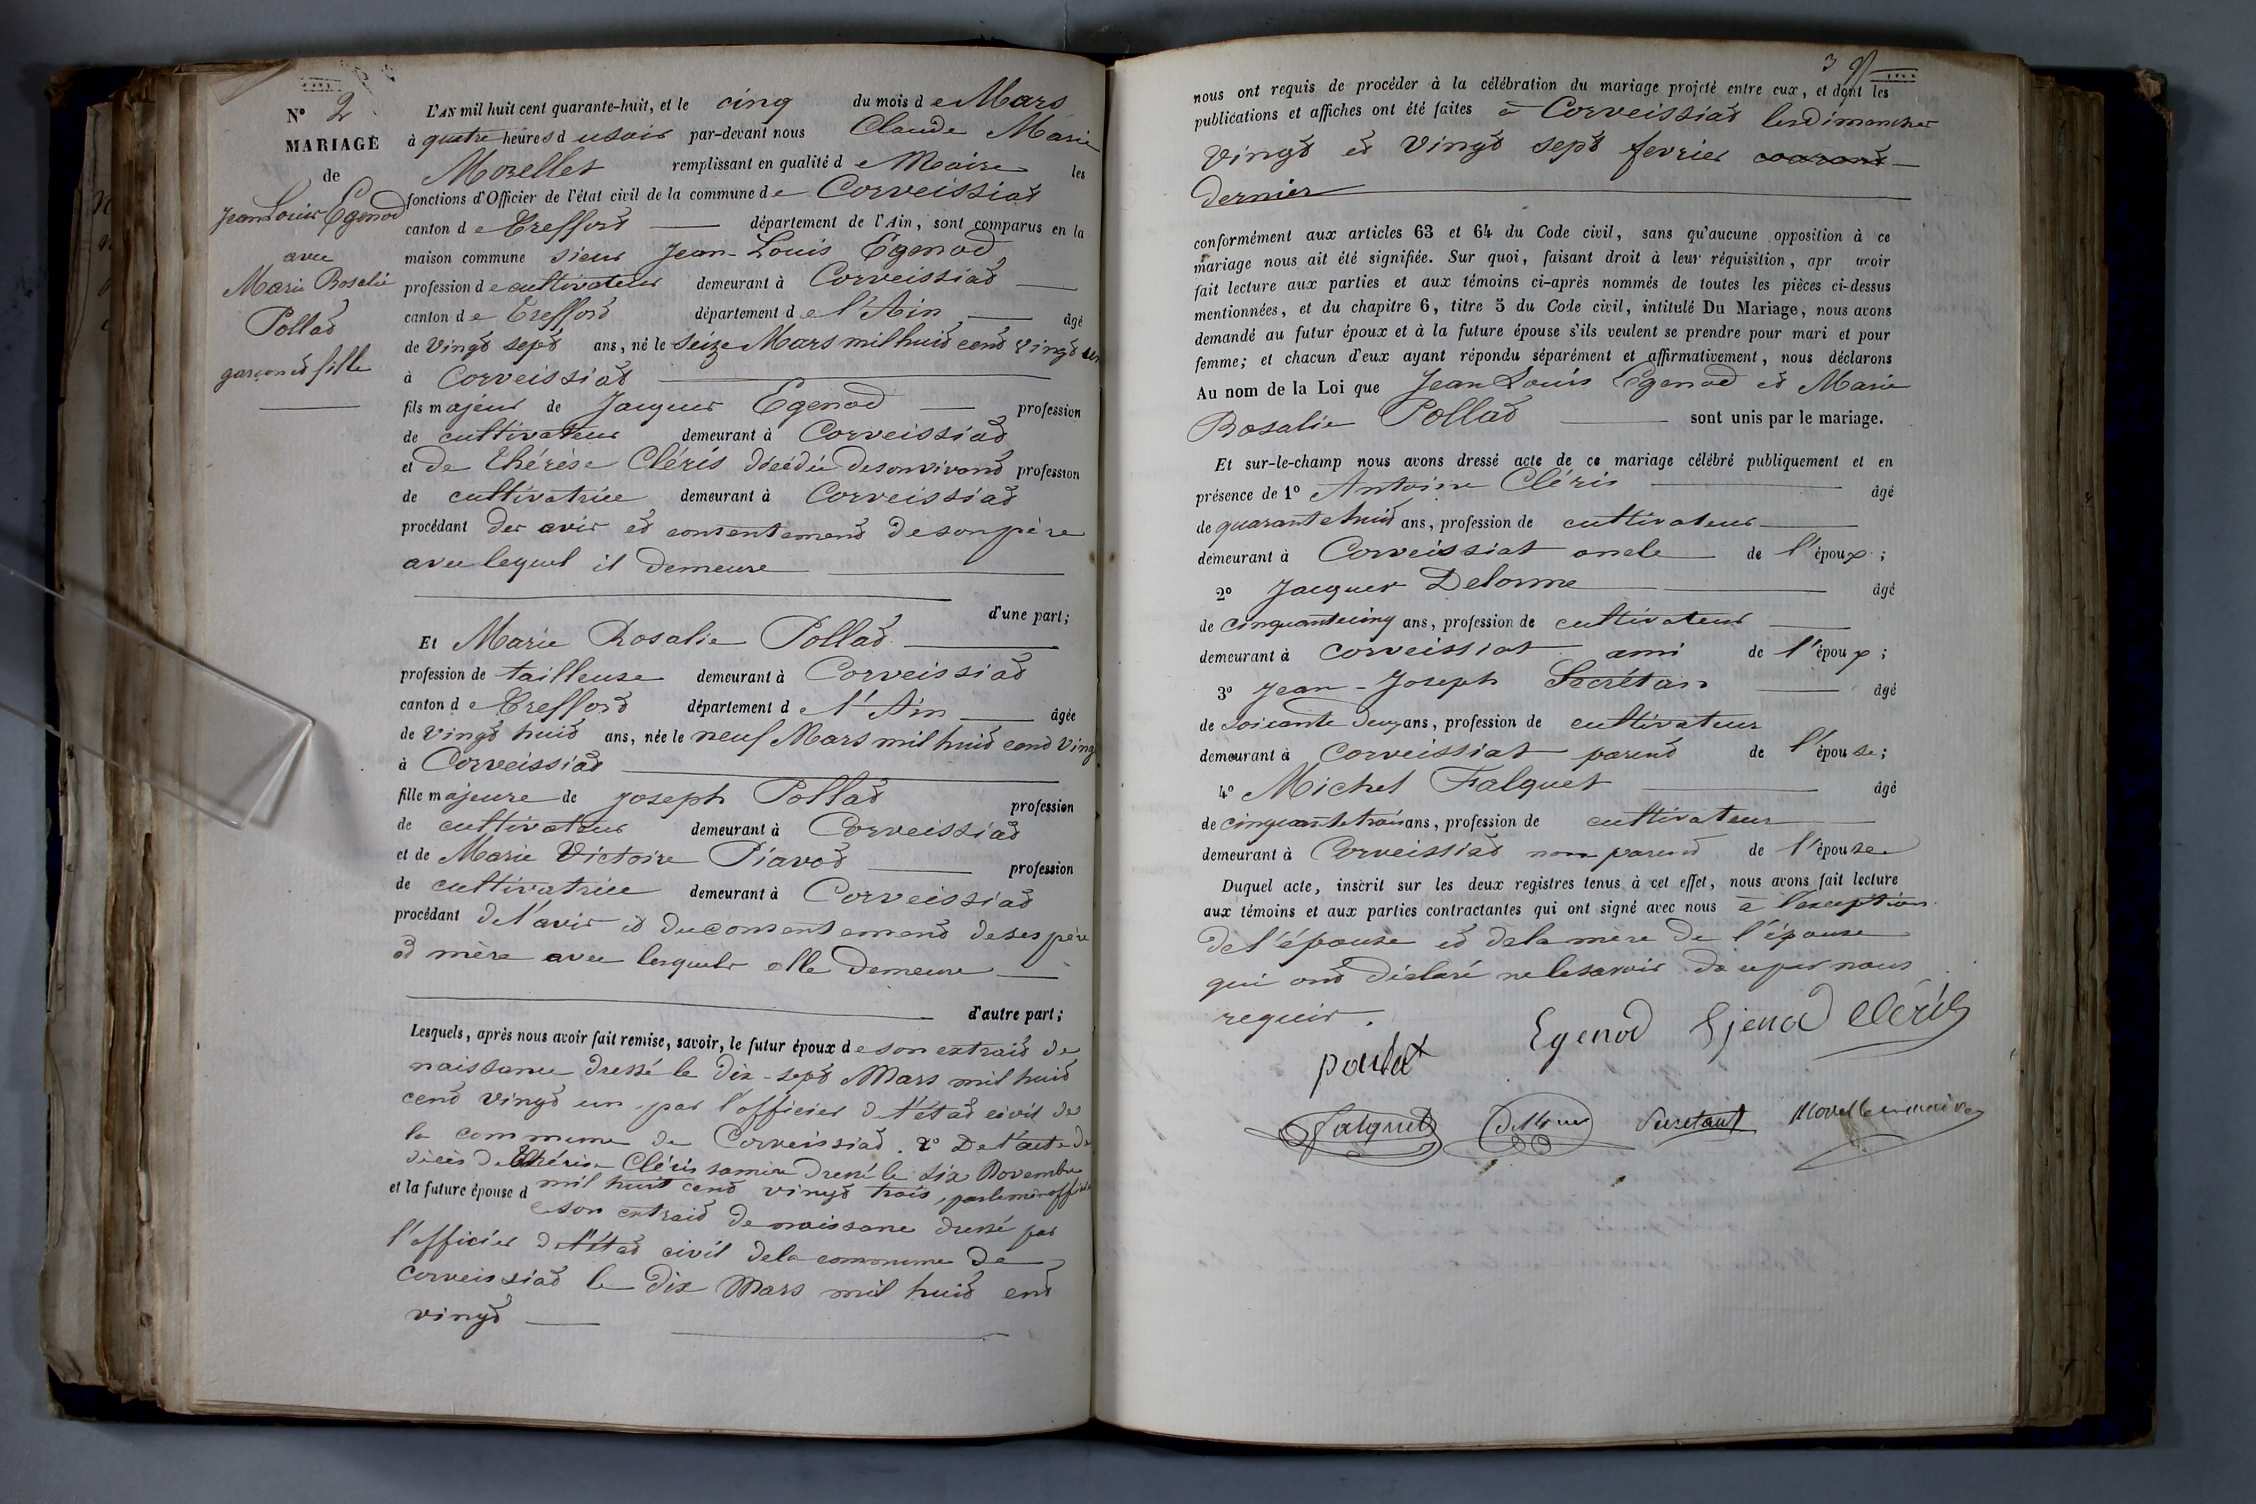 N° 2
MARIAGE
de
Jean Louis Egenod
avec
Marie Rosalie
Pollat
garçon et fille
L'AN mil huit cent quarante-huit, et le cinq du mois de Mars
à quatre heures du soir par-devant nous Claude Marie
Morellet remplissant en qualité de Maire les
fonctions d'Officier de l'état civil de la commune de Corveissiat
canton de Treffort département de l'Ain, sont comparus en la
maison commune sieur Jean-Louis Egenod,
profession de cultivateur demeurant à Corveissiat
canton de Treffort département de l'Ain âgé
de vingt sept ans, né le seize Mars mil huit cent vingt un
à Corveissiat
fils majeur de Jacques Egenod profession
de cultivateur demeurant à Corveissiat
et de Thérèse Cléris décédée de son vivant profession
de cultivatrice demeurant à Corveissiat
procédant des avis et consentement de son père
avec lequel il demeure
d'une part;
Et Marie Rosalie Pollat
profession de tailleuse demeurant à Corveissiat
canton de Treffort département de l'Ain âgée
de vingt huit ans, née le neuf Mars mil huit cent vingt
à Corveissiat
fille majeure de Joseph Pollat profession
de cultivateur demeurant à Corveissiat
et de Marie Victoire Piavot profession
de cultivatrice demeurant à Corveissiat
procédant de l'avis et du consentement de ses père
et mère avec lesquels elle demeure
d'autre part;
Lesquels, après nous avoir fait remise, savoir, le futur époux de son extrait de
naissance dressé le dix-sept Mars mil huit
cent vingt un par l'officier de l'état civil de
la commune de Corveissiat. 2° De l'acte de
décès de Thérèse Cléris sa mère dressé le six Novembre
mil huit cent vingt trois, par le même officier
et la future épouse de son extrait de naissance dressé par
l'officier de l'état civil de la commune de
Corveissiat le dix Mars mil huit cent
vingt
nous ont requis de procéder à la célébration du mariage projeté entre eux, et dont les
publications et affiches ont été faites à Corveissiat les dimanches
vingt et vingt sept fevrier courant
dernier
conformément aux articles 63 et 64 du Code civil, sans qu'aucune opposition à ce
mariage nous ait été signifiée. Sur quoi, faisant droit à leur réquisition, apr avoir
fait lecture aux parties et aux témoins ci-après nommés de toutes les pièces ci-dessus
mentionnées, et du chapitre 6, titre 5 du Code civil, intitulé Du Mariage, nous avons
demandé au futur époux et à la future épouse s'ils veulent se prendre pour mari et pour
femme; et chacun d'eux ayant répondu séparément et affirmativement, nous déclarons
Au nom de la Loi que Jean Louis Egenod et Marie
Rosalie Pollat sont unis par le mariage.
Et sur-le-champ nous avons dressé acte de ce mariage célébré publiquement et en
présence de 1° Antoine Cléris âgé
de quarante huit ans, profession de cultivateur
demeurant à Corveissiat oncle de l'époux;
2° Jacques Delorme âgé
de cinquante cinq ans, profession de cultivateur
demeurant à Corveissiat ami de l'époux;
3° Jean-Joseph Secrétan âgé
de soixante deux ans, profession de cultivateur
demeurant à Corveissiat parent de l'épouse;
4° Michel Falquet âgé
de cinquante trois ans, profession de cultivateur
demeurant à Corveissiat non parent de l'épouse
Duquel acte, inscrit sur les deux registres tenus à cet effet, nous avons fait lecture
aux témoins et aux parties contractantes qui ont signé avec nous à l'exception
de l'épouse et de la mère de l'épouse
qui ont déclaré ne le savoir de ce par nous
requis.
Egenod Ejenod Cléris
polat
falquet Delorme Secretant Morellet maire